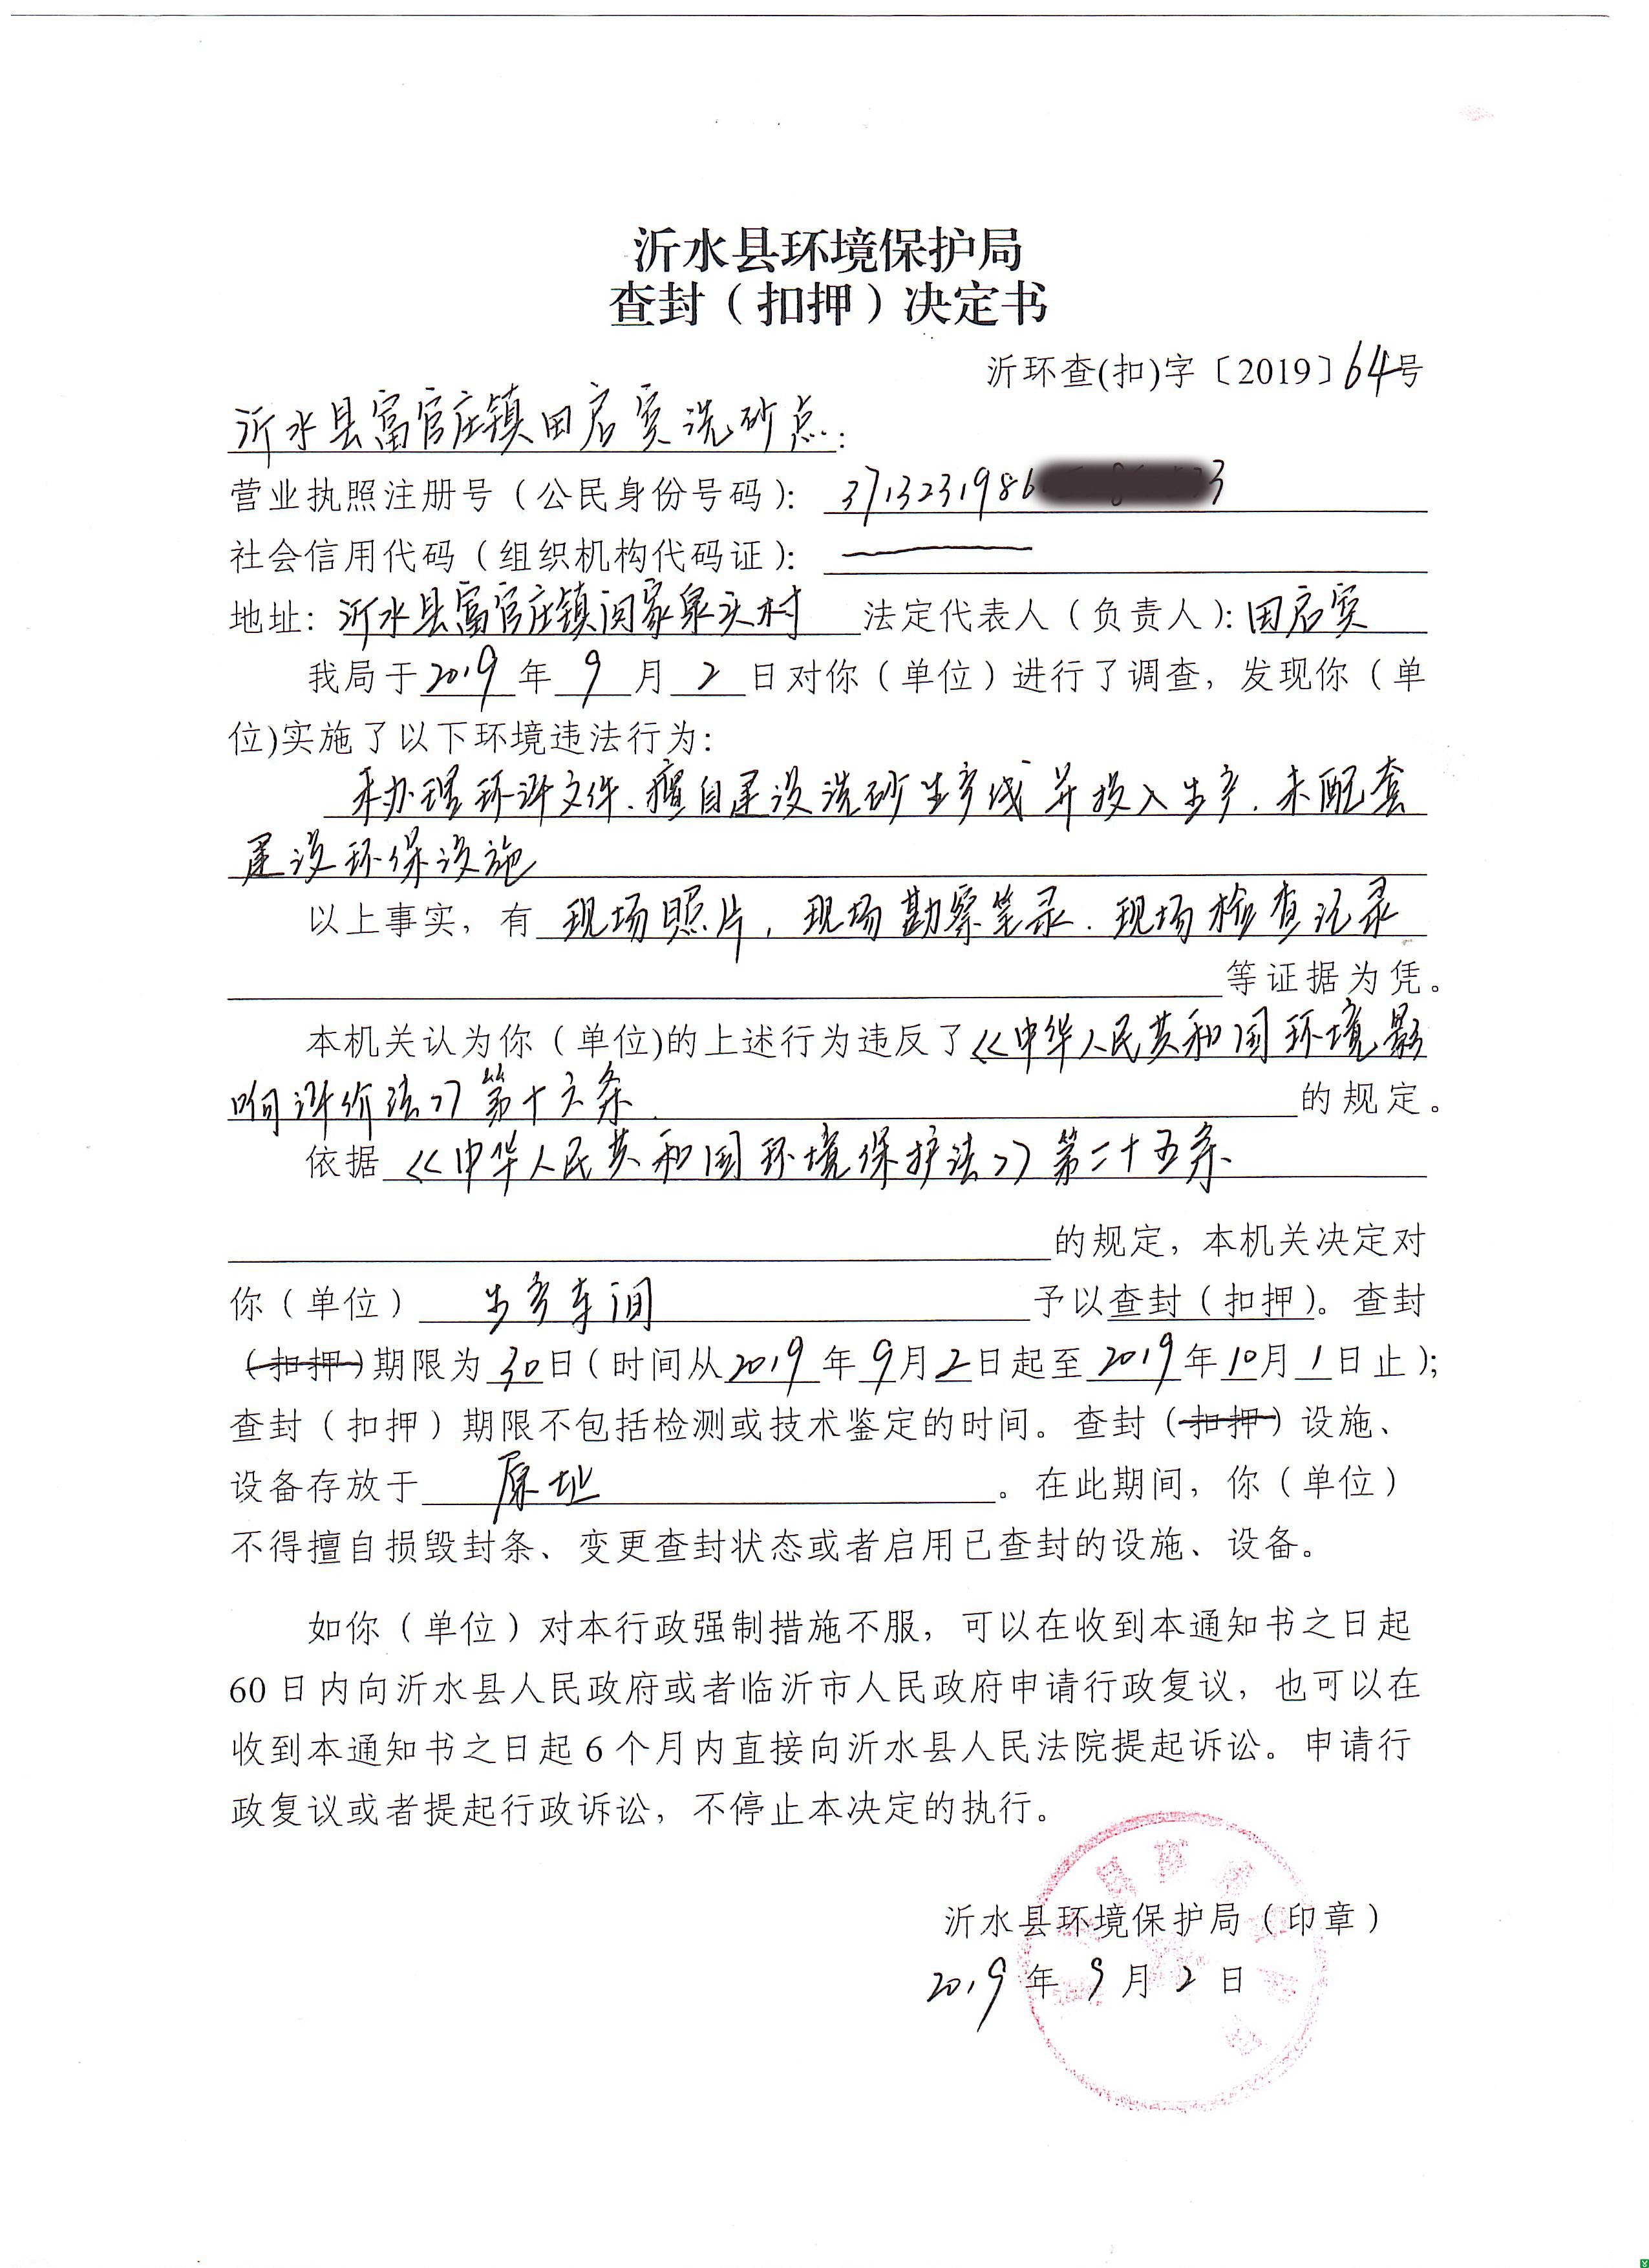 沂水县环境保护局
查封（扣押）决定书
沂环查(扣)字〔2019〕64号
沂水县富官庄镇田启实洗砂点：
营业执照注册号（公民身份号码）：3713231986 3
社会信用代码（组织机构代码证）：
地址：沂水县富官庄镇闵家泉头村 法定代表人（负责人）：田启实
我局于2019年9月2日对你（单位）进行了调查，发现你（单
位)实施了以下环境违法行为：
未办理环评文件、擅自建设洗砂生产线并投入生产.未配套
建设环保设施
以上事实，有现场照片，现场勘察笔录.现场检查记录
等证据为凭。
本机关认为你（单位)的上述行为违反了《中华人民共和国环境影
响评价法》第十六条的规定。
依据《中华人民共和国环境保护法》第二十五条
的规定，本机关决定对
你（单位）生产车间予以查封（扣押）。查封
（扣押）期限为30日（时间从2019年9月2日起至2019年10月1日止）；
查封（扣押）期限不包括检测或技术鉴定的时间。查封（扣押）设施、
设备存放于原址。在此期间，你（单位）
不得擅自损毁封条、变更查封状态或者启用已查封的设施、设备。
如你（单位）对本行政强制措施不服，可以在收到本通知书之日起
60日内向沂水县人民政府或者临沂市人民政府申请行政复议，也可以在
收到本通知书之日起6个月内直接向沂水县人民法院提起诉讼。申请行
政复议或者提起行政诉讼，不停止本决定的执行。
沂水县环境保护局（印章）
2019年9月2日